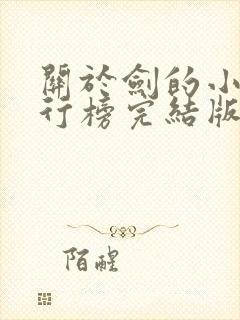 關於劍的小
行榜完結版
陌醒